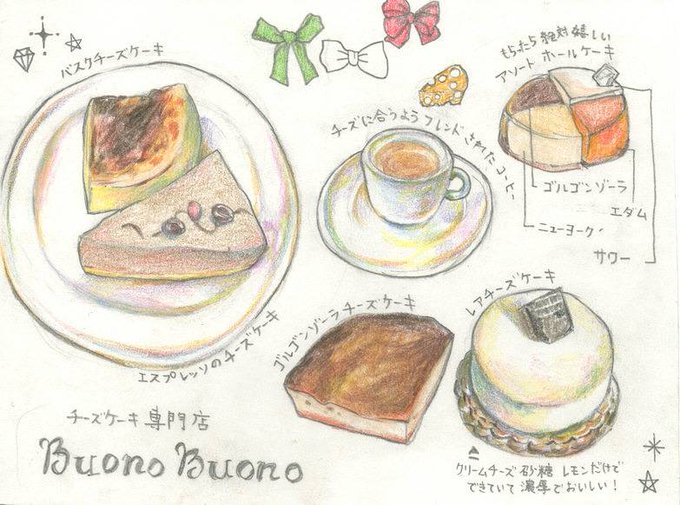 バスクチーズケーキ
もらったら絶対嬉しい
アソートホールケーキ
チーズに合うようブレンドされたコーヒー
ゴルゴンゾーラ
エダム
ニューヨーク
サワー
エスプレッソのチーズケーキ
ゴルゴンゾーラチーズケーキ
レアチーズケーキ
チーズケーキ専門店
Buono Buono
クリームチーズ 砂糖 レモンだけで
できていて濃厚でおいしい!